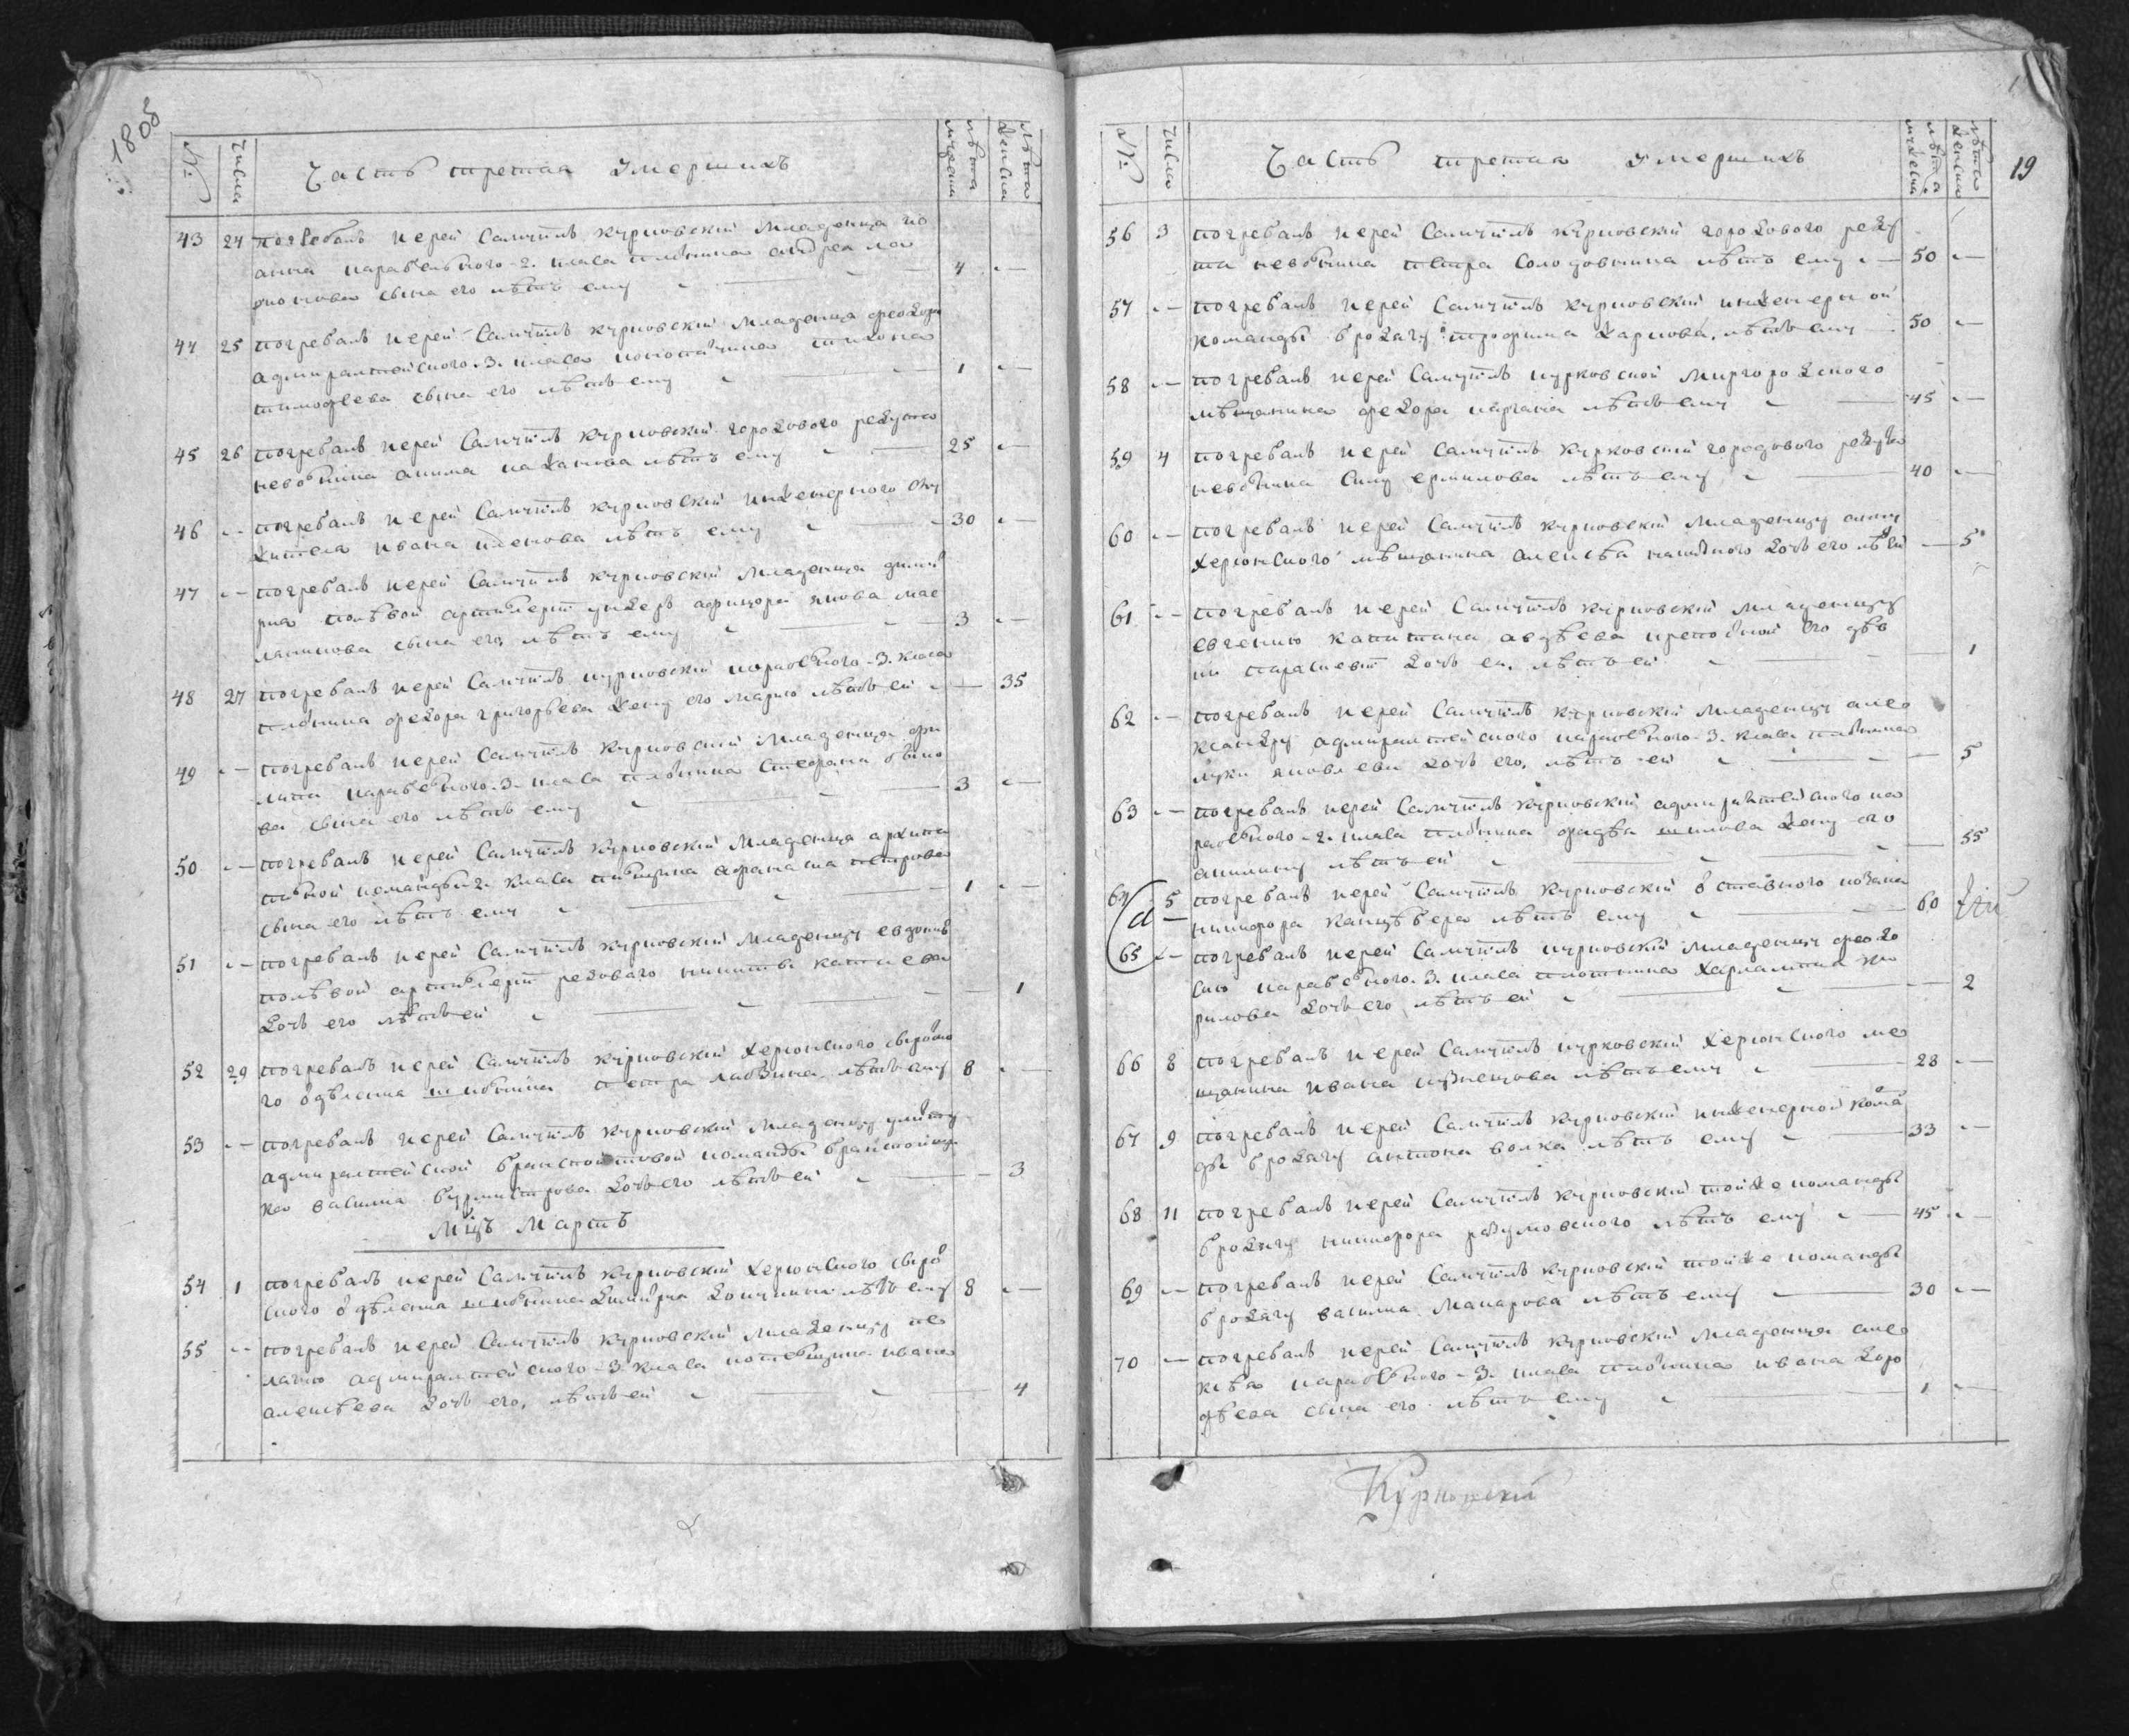 1808
№
Числа
Часть третая Умершихъ
лѣта мужеска
лѣта женска
43 24 погребалъ иерей Самуилъ курковский младенца ио
анна карабельного 2. класа плотника андрея ла
рионова сына его лѣтъ ему 4
44 25 погребалъ иерей Самуилъ курковский младенца феодора
адмиралтейского 3. класа конопатчика тихона
тимофеева сына его лѣтъ ему 1
45 26 погребалъ иерей Самуилъ курковский городового редута
невольника акима казакова лѣтъ ему 25
46 погребалъ иерей Самуилъ курковский инженерного слу
жителя ивана лѣтъ ему 30
47 погребалъ иерей Самуилъ курковский младенца дмит
рия полѣвой артилерии ундеръ афицера якова
сына его, лѣтъ ему 3
48 27 погребалъ иерей Самуилъ курковский карабельного 3. класа
плотника федора григорьева жену его марию лѣтъ ей 35
49 погребалъ иерей Самуилъ курковский младенца фи
липа карабельного 3. класа плотника Стефана
ва сына его лѣтъ ему 3
50 погребалъ иерей Самуилъ курковский младенца архипа
команды 2. класа афанасиа петрова
сына его лѣтъ ему 1
51 погребалъ иерей Самуилъ курковский младенцу евдокию
полѣвой артилерии редоваго никиты
дочь его лѣтъ ей 1
52 29 погребалъ иерей Самуилъ курковский херсонского сиротско
го отдѣления школника петра лѣтъ ему 8
53 погребалъ иерей Самуилъ курковский младенцу улиту
адмиралтейской бранспойтовой команды бранспойщи
ка василиа бурмистрова дочь его лѣтъ ей 3
Мцъ Мартъ
54 1 погребалъ иерей Самуилъ курковский херсонского сирот
ского отдѣления школника димитрия лѣтъ ему 8
55 погребалъ иерей Самуилъ курковский младенцу пе
лагию адмиралтейского 3 класа ивана
алексѣева дочь его, лѣтъ ей 4
19
№
Числа
Часть третая Умершихъ
лѣта мужеска
лѣта женска
56 3 погребалъ иерей Самуилъ курковский городового реду
та невольника петра Солодовника лѣтъ ему 50
57 погребалъ иерей Самуилъ курковский инженерной
команды бродягу трофима карпова, лѣтъ ему 50
58 погребалъ иерей Самуилъ курковской миргородского
мѣщанина федора лѣтъ ему 45
59 4 погребалъ иерей Самуилъ курковский городового редута
невольника Силу ермилова лѣтъ ему 40
60 погребалъ иерей Самуилъ курковский младенцу анну
херсонского мѣщанина алексѣа дочь его лѣтъ ей 5
61 погребалъ иерей Самуилъ курковский младенцу
евгению капитана авдѣева крепосной его дѣв
ки параскевии дочь ея, лѣтъ ей 1
62 погребалъ иерей Самуилъ курковский младенцу алек
сандру адмиралтейского карабельного 3. класа плотника
луки яковлева дочь его, лѣтъ ей 5
63 погребалъ иерей Самуилъ курковский адмиралтейского ка
рабельного 2. класа плотника фадѣа жену его
акилину лѣтъ ей 55
64 5 погребалъ иерей Самуилъ курковский отставного козака
никифора лѣтъ ему 60
65 погребалъ иерей Самуилъ курковский младенцу феодо
сию карабельного 3. класа плотника харлампиа ки
рилова дочь его, лѣтъ ей 2
66 8 погребалъ иерей Самуилъ курковский херсонского ме
щанина ивана кузнецова лѣтъ ему 28
67 9 погребалъ иерей Самуилъ курковский инженерной коман
ды бродягу антона волка лѣтъ ему 33
68 11 погребалъ иерей Самуилъ курковский тойже команды
бродягу никифора разумовского лѣтъ ему 45
69 погребалъ иерей Самуилъ курковский тойже команды
бродягу василиа Макарова лѣтъ ему 30
70 погребалъ иерей Самуилъ курковский младенца алек
сѣа карабельного 3. класа плотника ивана дор
дѣева сына его лѣтъ ему 1
Курковский